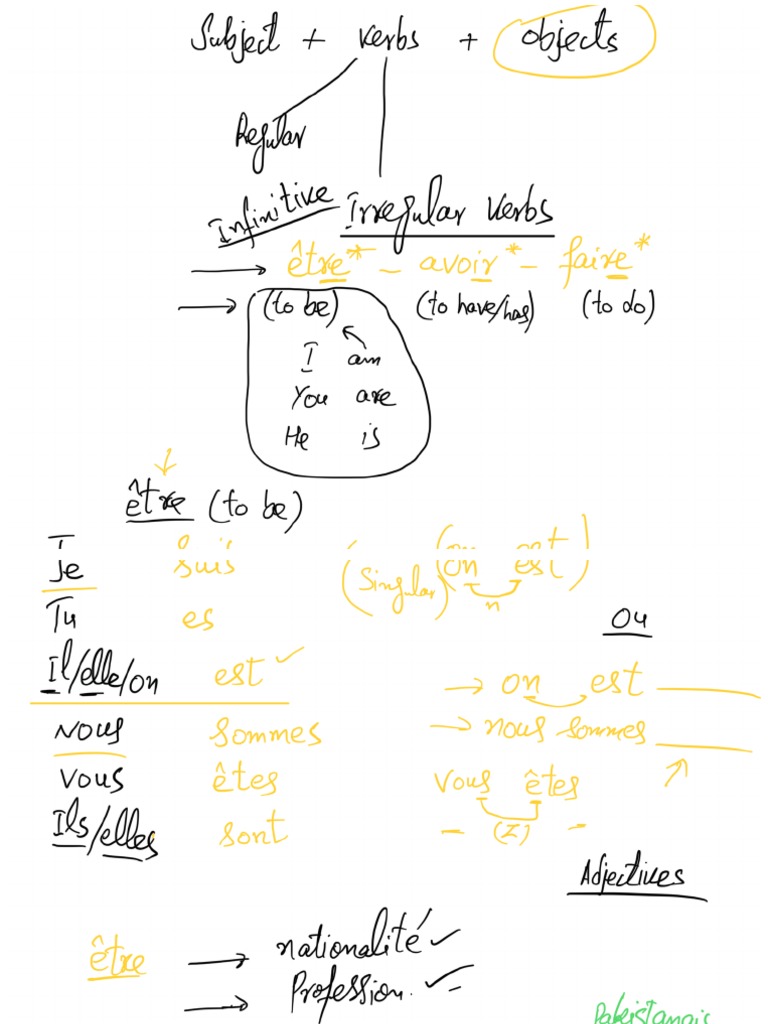 Subject + verbs + objects
Regular
Infinitive Irregular verbs
→ être* – avoir* – faire*
→ (to be) (to have/has) (to do)
I am
You are
He is
être (to be)
Je suis (Singular) (on est)
n
Tu es Ou
Il/elle/on est ✓ → on est
nous sommes → nous sommes
vous êtes vous êtes
Ils/elles sont – (Z) –
Adjectives
être → nationalité ✓
→ Profession. ✓
Pakistanais